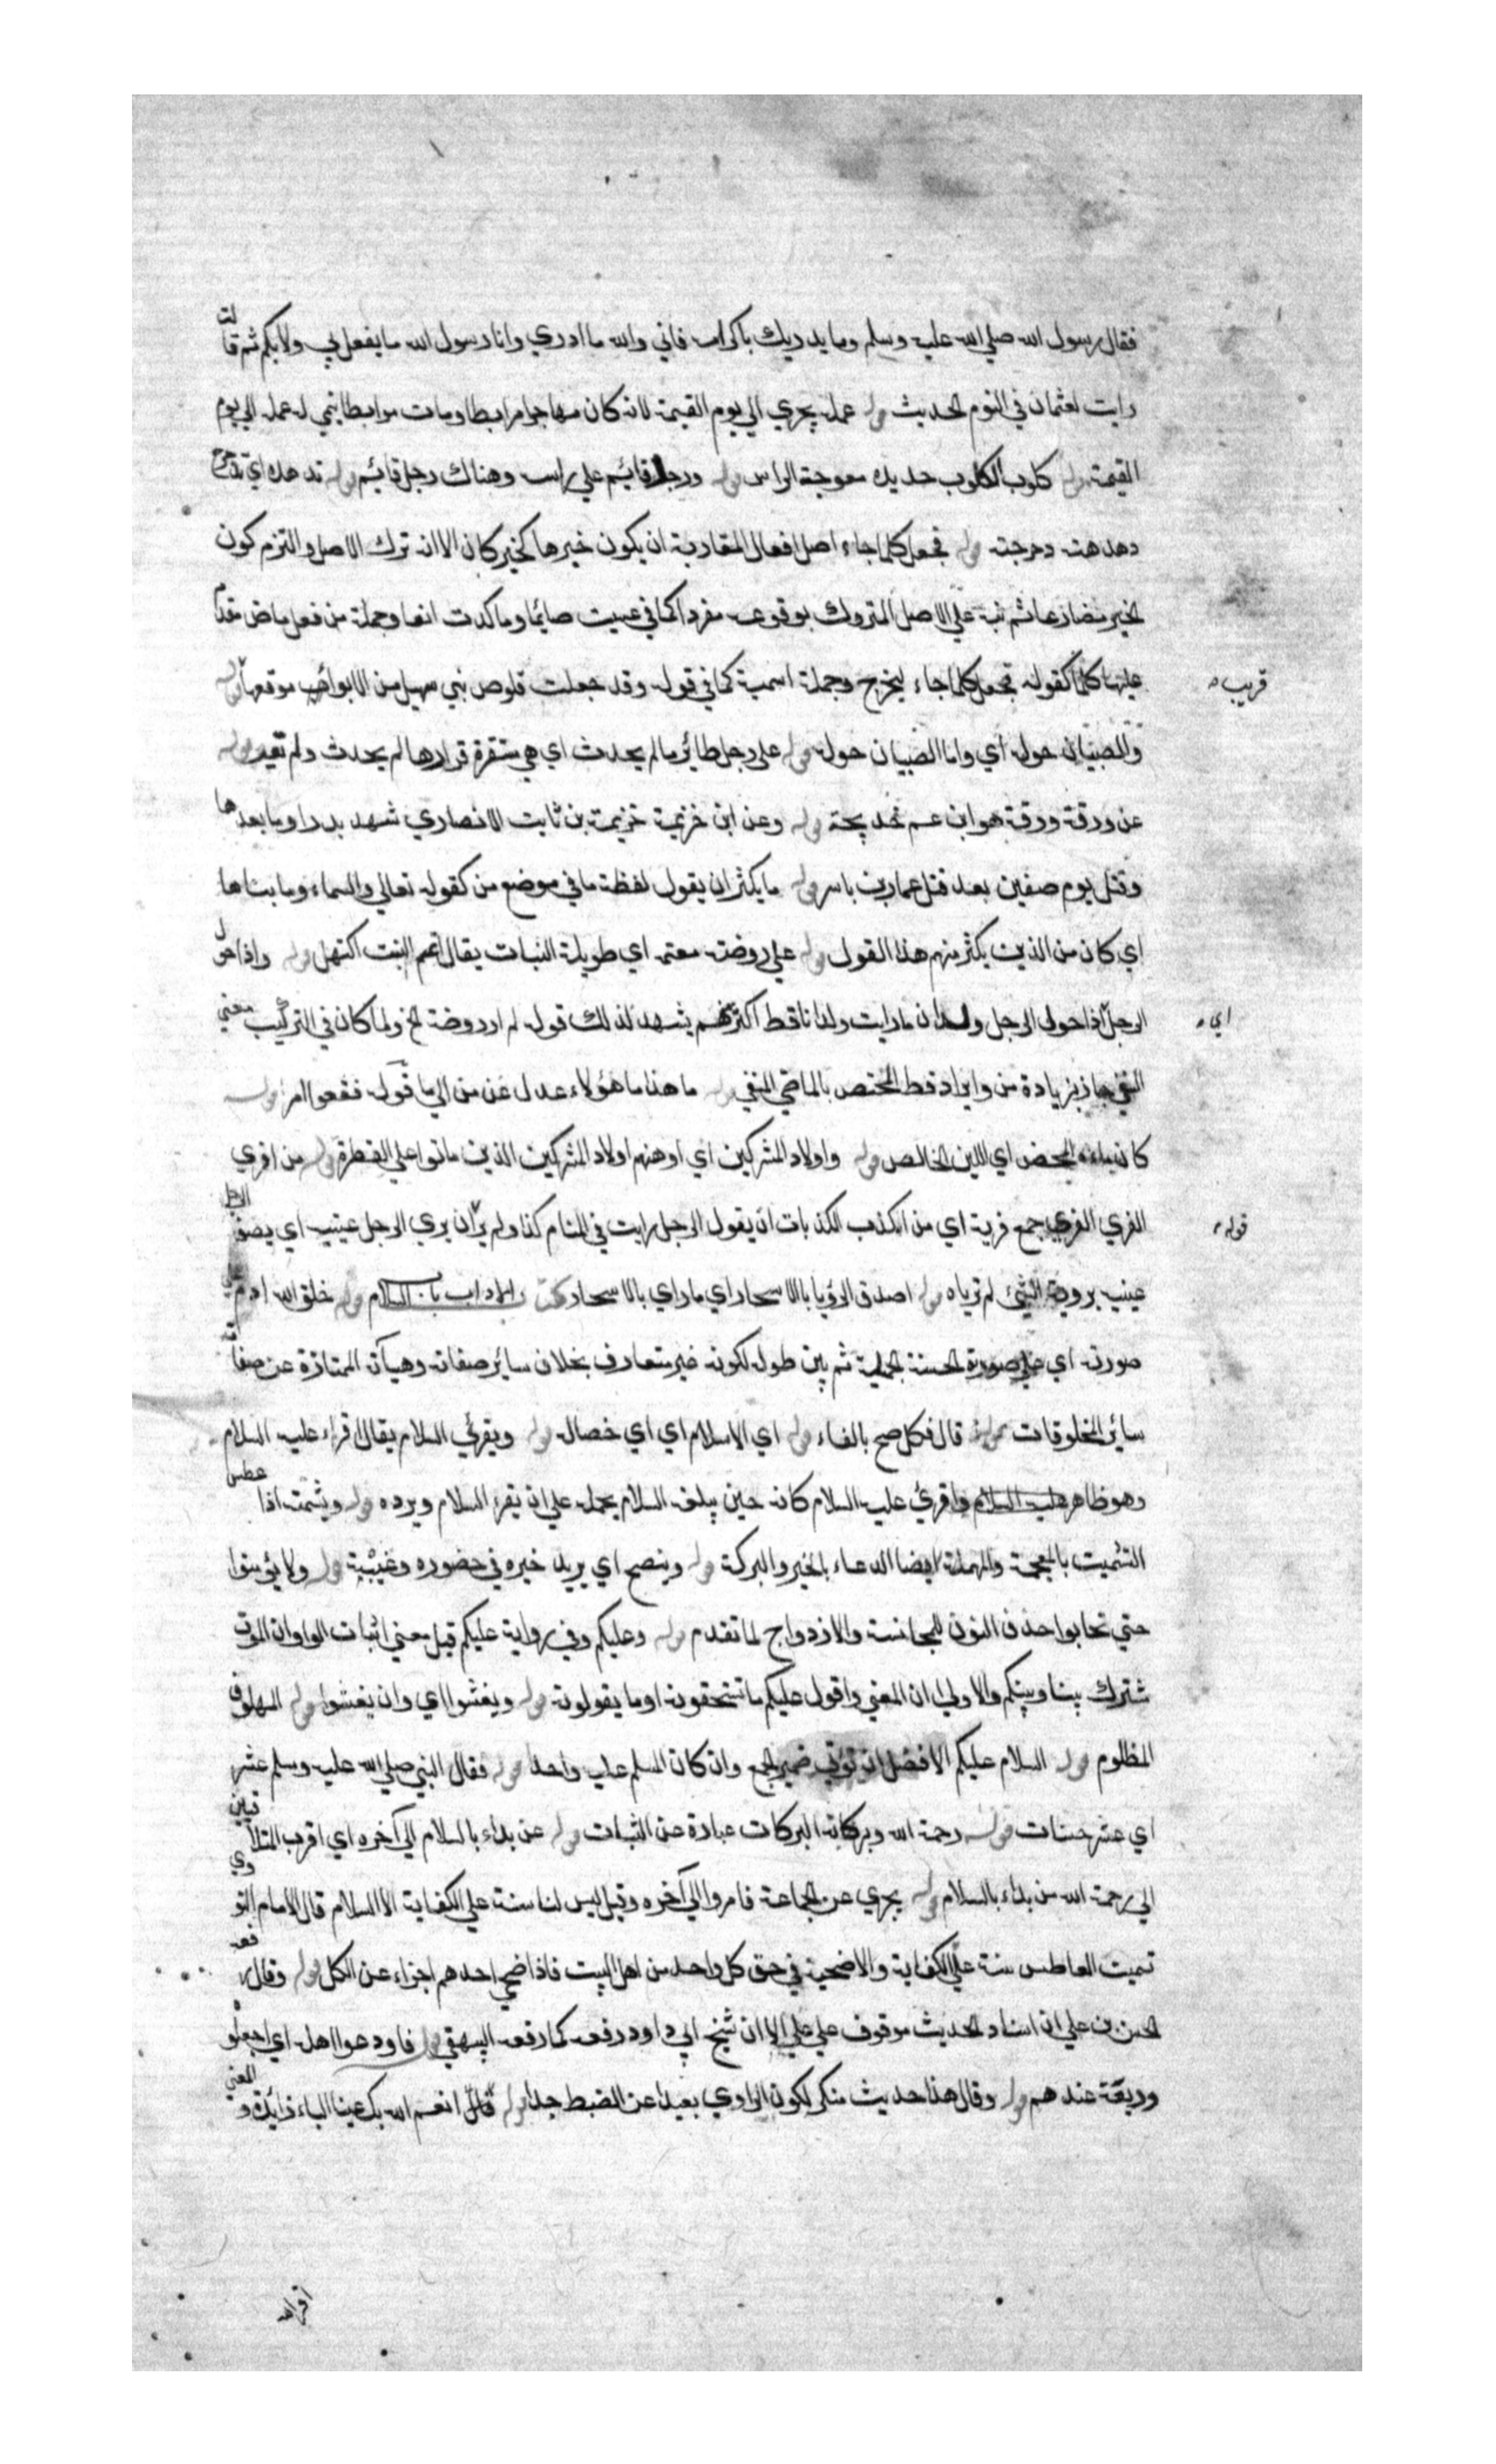 فقال رسول الله صلي الله عليه وسلم وما يدريك باكرامه فاني والله ما ادري وانا رسول الله ما يفعل بي ولا بكم ثم قالت
رايت لعثمان في النوم الحديث قوله عمله يجري الي يوم القيمة لانه كان مهاجرا مرابطا ومات مرابطا ينمي له عمله الي يوم
القيمة قوله كلوب الكلوب حديده معوجة الراس قوله ورجل قائم علي راسه وهناك رجل قائم قوله تدهده اي تدحرج
دهدهته دحرجته قوله فجعل كلما جاء اصل افعال المقاربة ان يكون خبرها كخبر كان الا انه ترك الاصل والتزم كون
الخبر مضارعا ثم نبه علي الاصل المتروك بوقوعه مفردا كما في عسيت صايما وما كدت ائبا وجملة من فعل ماض مقدما
عليها كلما كقوله فجعل كلما جاء ليخرج وجملة اسمية كما في قوله وقد جعلت قلوص بني سهيل من الاكوار موقعها قوله
قريب
والصبيان حوله اي وانا الصبيان حوله قوله علي رجل طائر ما لم يحدث اي هي مستقرة قرارها لم يحدث ولم تعبر قوله
عن ورقة ورقة هو ابن عم خديجة قوله وعن ابن خزيمة خزيمة بن ثابت الانصاري شهد بدرا وما بعدها
وقتل يوم صفين بعد قتل عمار بن ياسر قوله ما يكثر ان يقول لفظة ما في موضع من كقوله تعالي والسماء وما بناها
اي كان من الذين يكثر منهم هذا القول قوله علي روضة معتمة اي طويلة النبات يقال اعتم النبت اكتهل قوله واذا حول
الرجل اذا حول الرجل ولدان ما رايت ولدانا قط اكثر منهم يشهد لذلك قوله لم ار روضة الخ ولما كان في التركيب معني
اي
النفي جاز زيادة من وايراد قط المختص بالماضي المنفي قوله ما هذا ما هؤلاء عدل عن من الي ما قوله فقعوا امر قوله
كان ماءه المحض اي اللبن الخالص قوله واولاد المشركين اي اوهنهم اولاد المشركين الذين ماتوا علي الفطرة قوله من افري
الفري الفري جمع فرية اي من اكذب الكذبات ان يقول الرجل رايت في المنام كذا ولم ير ان يري الرجل عينيه اي يصف الرجل
قوله
عينيه بروية الشئ لم ترياه قوله اصدق الرؤيا بالاسحار اي ما راي بالاسحار كتاب الاداب باب السلام قوله خلق الله ادم علي
صورته اي علي صورته الحسنة الجميلة ثم بين طوله لكونه غير متعارف بخلاف سائر صفاته وهيأته الممتازة عن صفات
سائر المخلوقات قوله قال فكل صح بالفاء قوله اي الاسلام اي اي خصاله قوله ويقرئ السلام يقال اقراء عليه السلام
وهو ظاهر عليه السلام واقرئ عليه السلام كانه حين يبلغه السلام يحمله علي ان يقرء السلام ويرده قوله ويشمته اذا عطس
التشميت بالمعجمة والمهملة ايضا الدعاء بالخير والبركة قوله وينصح اي يريد خيره في حضوره وغيبته قوله ولا يؤمنوا
حتي تحابوا حذف النون للمجانسة والازدواج لما تقدم قوله وعليكم وفي رواية عليكم قيل معني اثبات الواو ان الموت
مشترك بيننا وبينكم والاولي ان المعني واقول عليكم ما تستحقونه او ما يقولونه قوله ويفشوا اي وان يفشوا قوله الملهوف
المظلوم قوله السلام عليكم الافضل ان تؤتي ضمير الجمع وان كان المسلم عليه واحدا قوله فقال النبي صلي الله عليه وسلم عشر
اي عشر حسنات قوله رحمة الله وبركاته البركات عبارة عن الثبات قوله عن بداء بالسلام الي آخره اي اقرب المتلاقيين
الي رحمة الله من بداء بالسلام قوله يجزي عن الجماعة فامروا الي آخره وقيل ليس لنا سنة علي الكفاية الا السلام قال الامام النووي
تميت العاطس سنة علي الكفاية والاضحية في حق كل واحد من اهل البيت فاذا ضحي احدهم اجزاء عن الكل قوله وقال رفعه
الحسن بن علي ان اسناد الحديث موقوف علي علي الا ان شيخ ابي داود رفعه كما رفعه البيهقي قوله فاودعوا اهله اي اجعلوه
وديعة عندهم قوله وقال هذا حديث منكر لكون الراوي بعيدا عن الضبط جدا قوله قال انعم الله بك عينا الباء زائدة و المعني
اقر الله